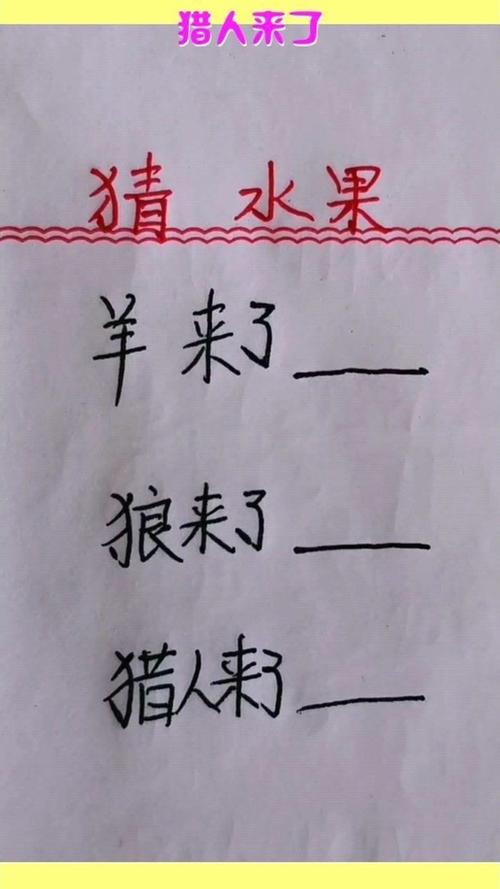 猎人来了
猜 水果
羊来了
狼来了
猎人来了